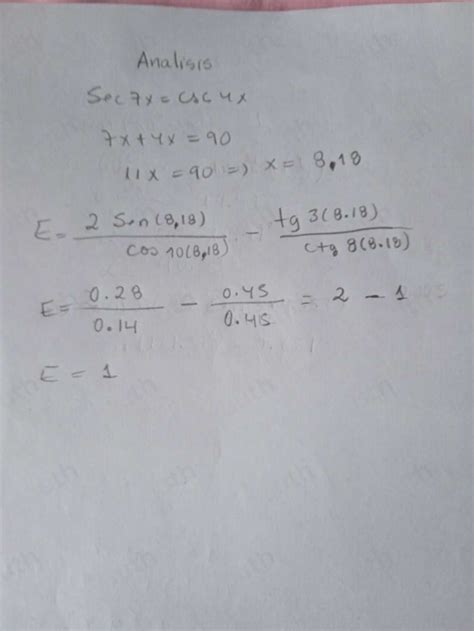 Analisis
Sec 7x = csc 4x
7x + 4x = 90
11x = 90 => x = 8,18
E = 2 Sen (8,18) / cos 10(8,18) - tg 3(8.18) / ctg 8(8.18)
E = 0.28 / 0.14 - 0.45 / 0.45 = 2 - 1
E = 1